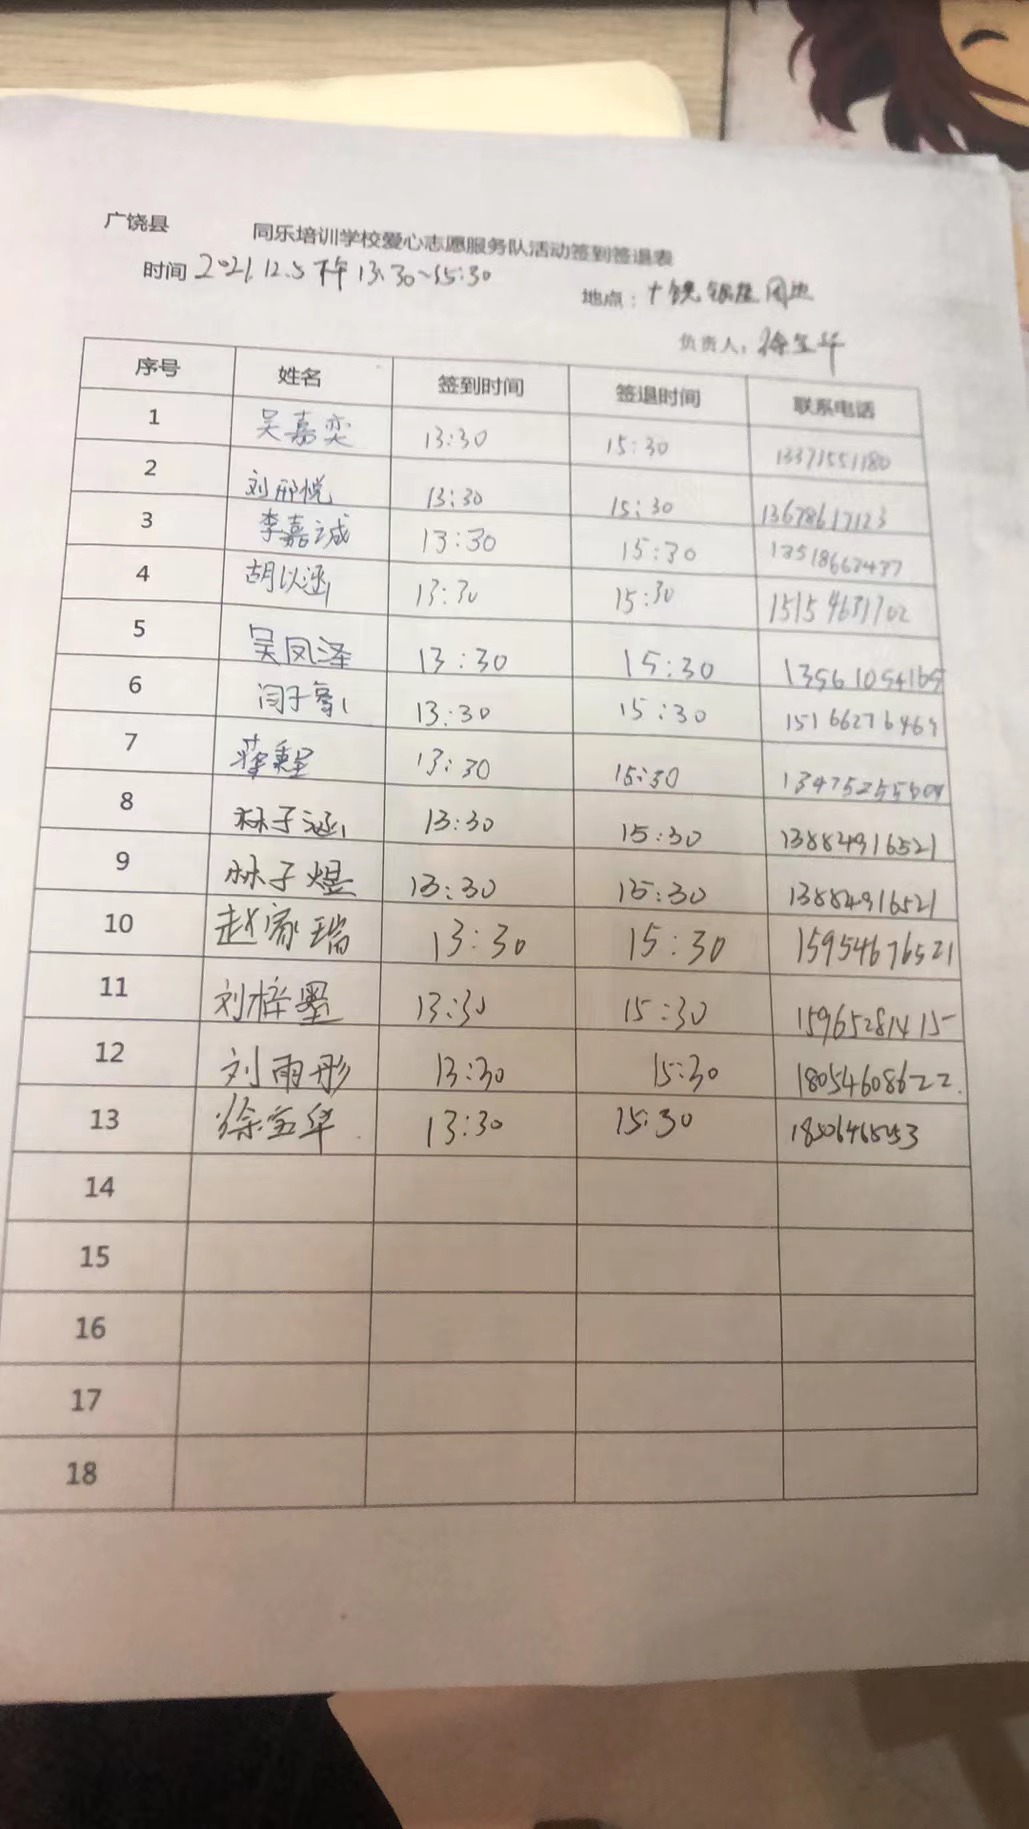 广饶县 同乐培训学校爱心志愿服务队活动签到签退表
时间 2021.12.5 下午 13:30~15:30
地点:
负责人: 徐宝华
序号 姓名 签到时间 签退时间 联系电话
1 吴嘉奕 13:30 15:30 13371551180
2 刘邢悦 13:30 15:30 13678617123
3 李嘉诚 13:30 15:30
4 胡以涵 13:30 15:30 15154631702
5 吴凤泽 13:30 15:30 13561054165
6 闫子 13:30 15:30
7 13:30 15:30
8 林子涵 13:30 15:30 13884916521
9 林子煜 13:30 15:30 13884916521
10 赵家瑞 13:30 15:30 15954676521
11 刘梓墨 13:30 15:30 15965281415
12 刘雨彤 13:30 15:30 18054608622
13 徐宝华 13:30 15:30
14
15
16
17
18